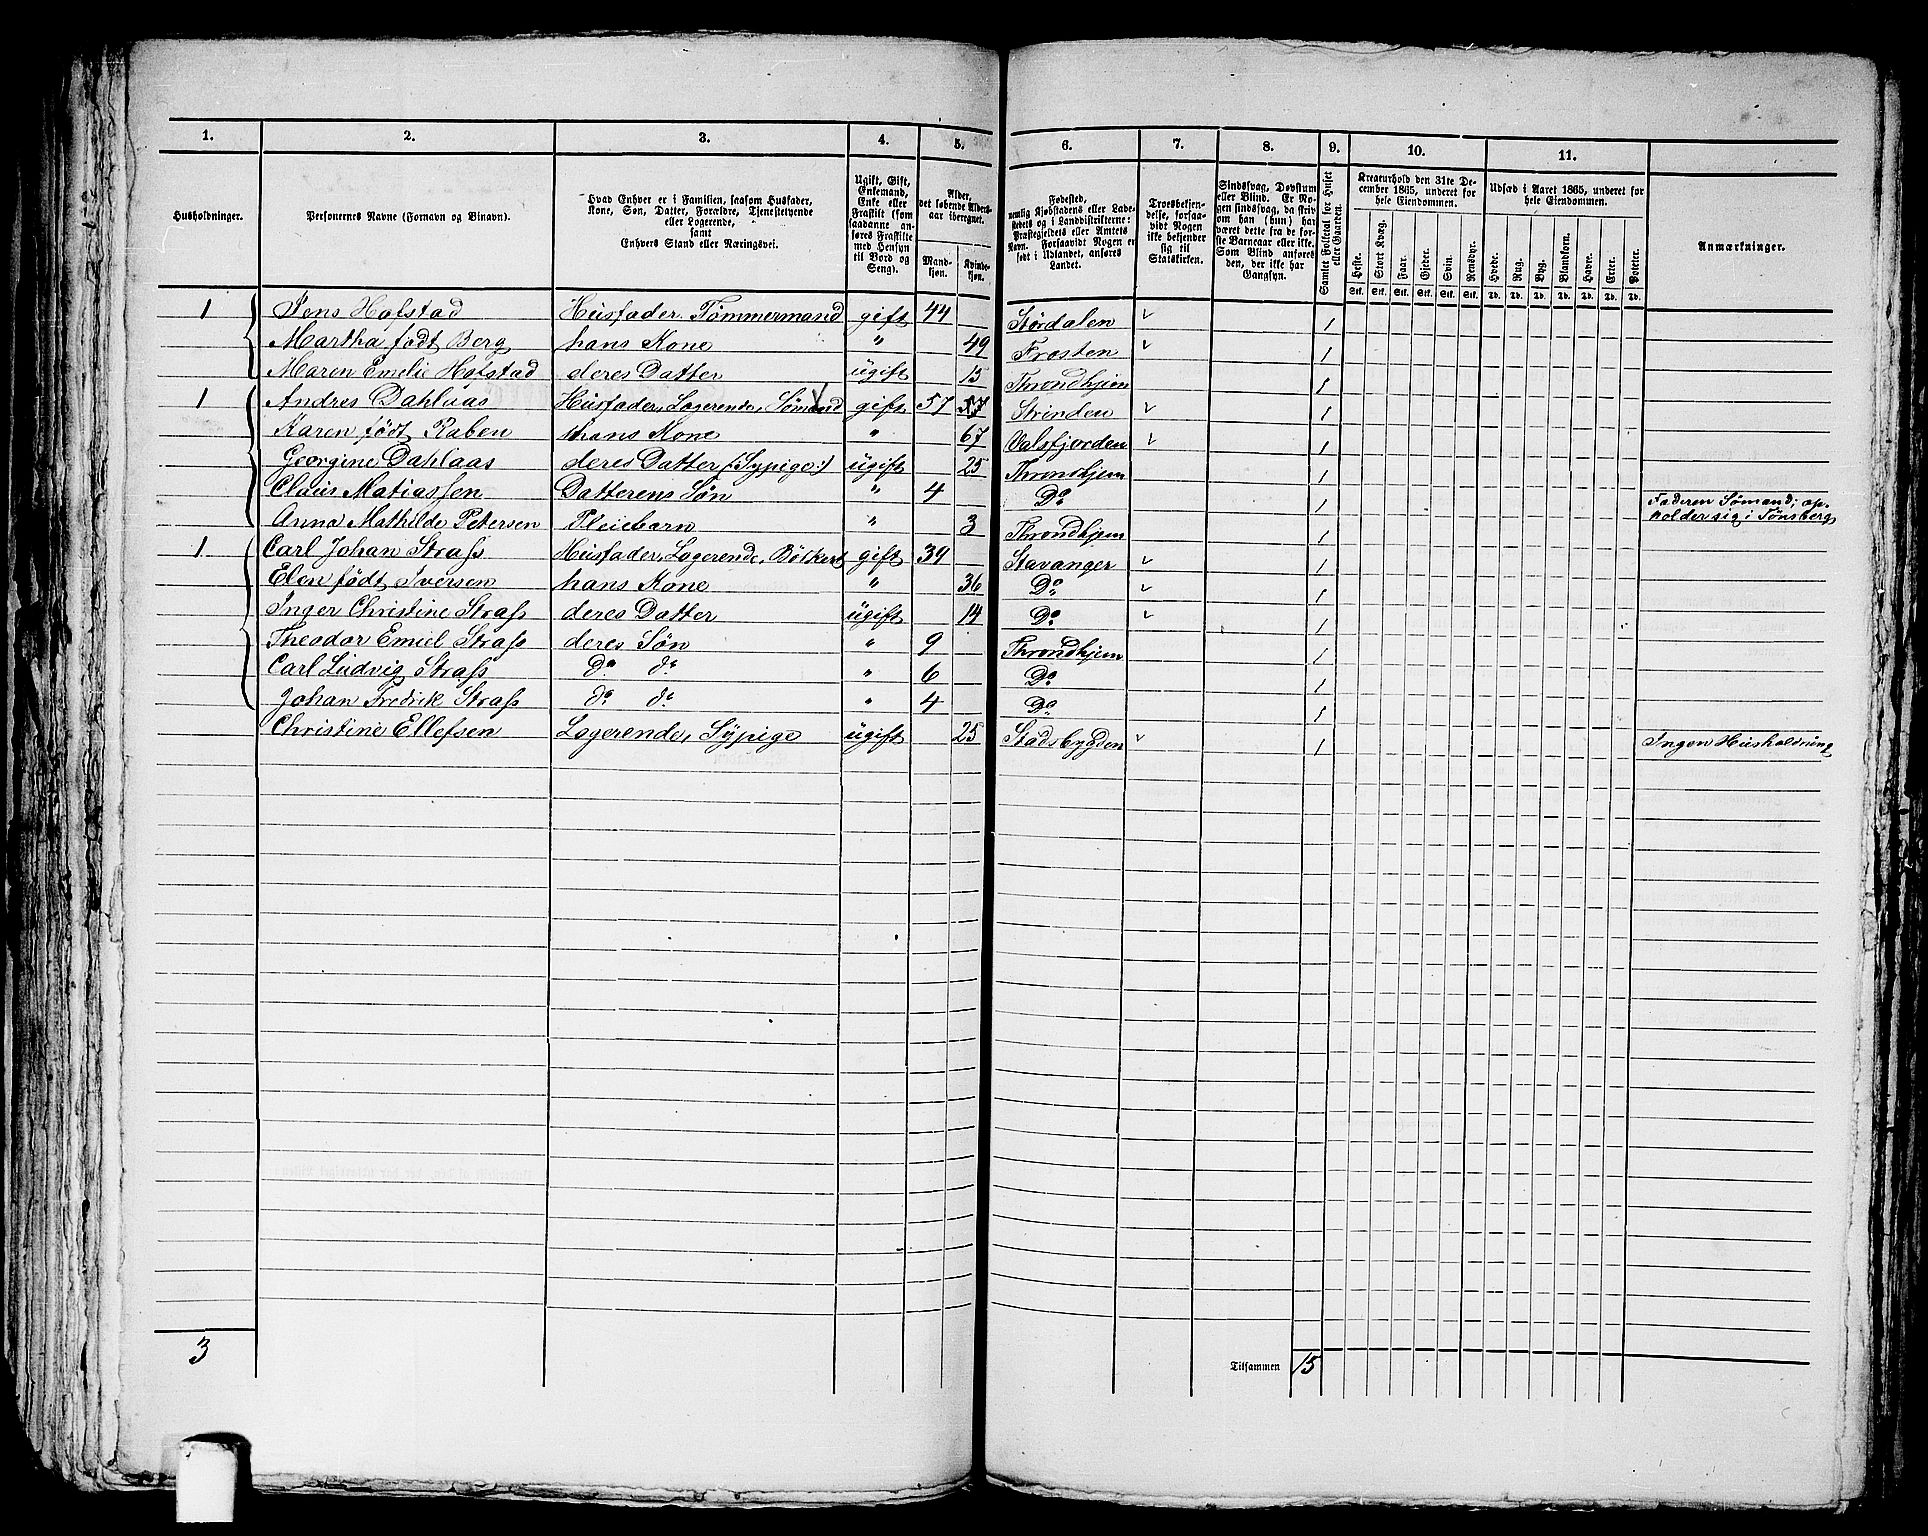 1. 2. 3. 4. 5. 6. 7. 8. 9. 10. 11.
Husholdninger.
Personernes Navne (Fornavn og Binavn).
Hvad Enhver er i Familien, saasom Husfader,
Kone, Søn, Datter, Forældre, Tjenestetyende
eller Logerende,
samt
Enhvers Stand eller Næringsvei.
Ugift, Gift,
Enkemand,
Enke eller
Fraskilt (som
saadanne an-
føres Fraskilte
med Hensyn
til Bord og
Seng).
Alder,
det løbende Alders-
aar iberegnet.
Mand-
kjøn.
Kvinde-
kjøn.
Fødested,
nemlig Kjøbstadens eller Lade-
stedets og i Landdistrikterne:
Præstegjeldets eller Amtets
Navn. Forsaavidt Nogen er
født i Udlandet, anføres
Landet.
Troesbekjen-
delse, forsaa-
vidt Nogen
ikke bekjender
sig til
Statskirken.
Sindssvag, Døvstum
eller Blind. Er No-
gen sindssvag, da skriv
om han (hun) har
været dette fra de før-
ste Barneaar eller ikke.
Som Blind anføres
den, der ikke har
Gangsyn.
Samlet Folketal for Huset
eller Gaarden.
Kreaturhold den 31te De-
cember 1865, underet for
hele Eiendommen.
Heste. Stort Kvæg. Faar. Gjeder. Svin. Rensdyr.
Stk. Stk. Stk. Stk. Stk. Stk.
Udsæd i Aaret 1865, underet for
hele Eiendommen.
Hvede. Rug. Byg. Blandkorn. Havre. Erter. Poteter.
Td. Td. Td. Td. Td. Td. Td.
Anmærkninger.
1 Jens Hofstad Husfader. Tømmermand gift 44 Stördalen 1
Martha födt Berg hans Kone " 49 Frosten 1
Maren Emelie Hofstad deres Datter ugift 15 Throndhjem 1
1 Andres Dahlaas Husfader, Logerende, Sømand gift 57 Strinden 1
Karen födt Raben hans Kone " 67 Valsfjorden 1
Georgine Dahlaas deres Datter (:Sypige:) ugift 25 Throndhjem 1
Claus Matiassen Datterens Søn " 4 Do 1 Faderen Sømand; op-
holder sig i Tönsberg
Anna Mathilde Petersen Pleiebarn " 3 Throndhjem 1
1 Carl Johan Strass Husfader, Logerende, gift 39 Stavanger 1
Elen födt Iversen hans Kone " 36 Do 1
Inger Christine Strass deres Datter ugift 14 Do 1
Theodor Emiel Strass deres Søn " 9 Throndhjem 1
Carl Ludvig Strass do do " 6 Do 1
Johan Fredrik Strass do do " 4 Do 1
Christine Ellefsen Logerende, Sypige ugift 25 Stadsbygden 1 Ingen Husholdning
3 Tilsammen 15